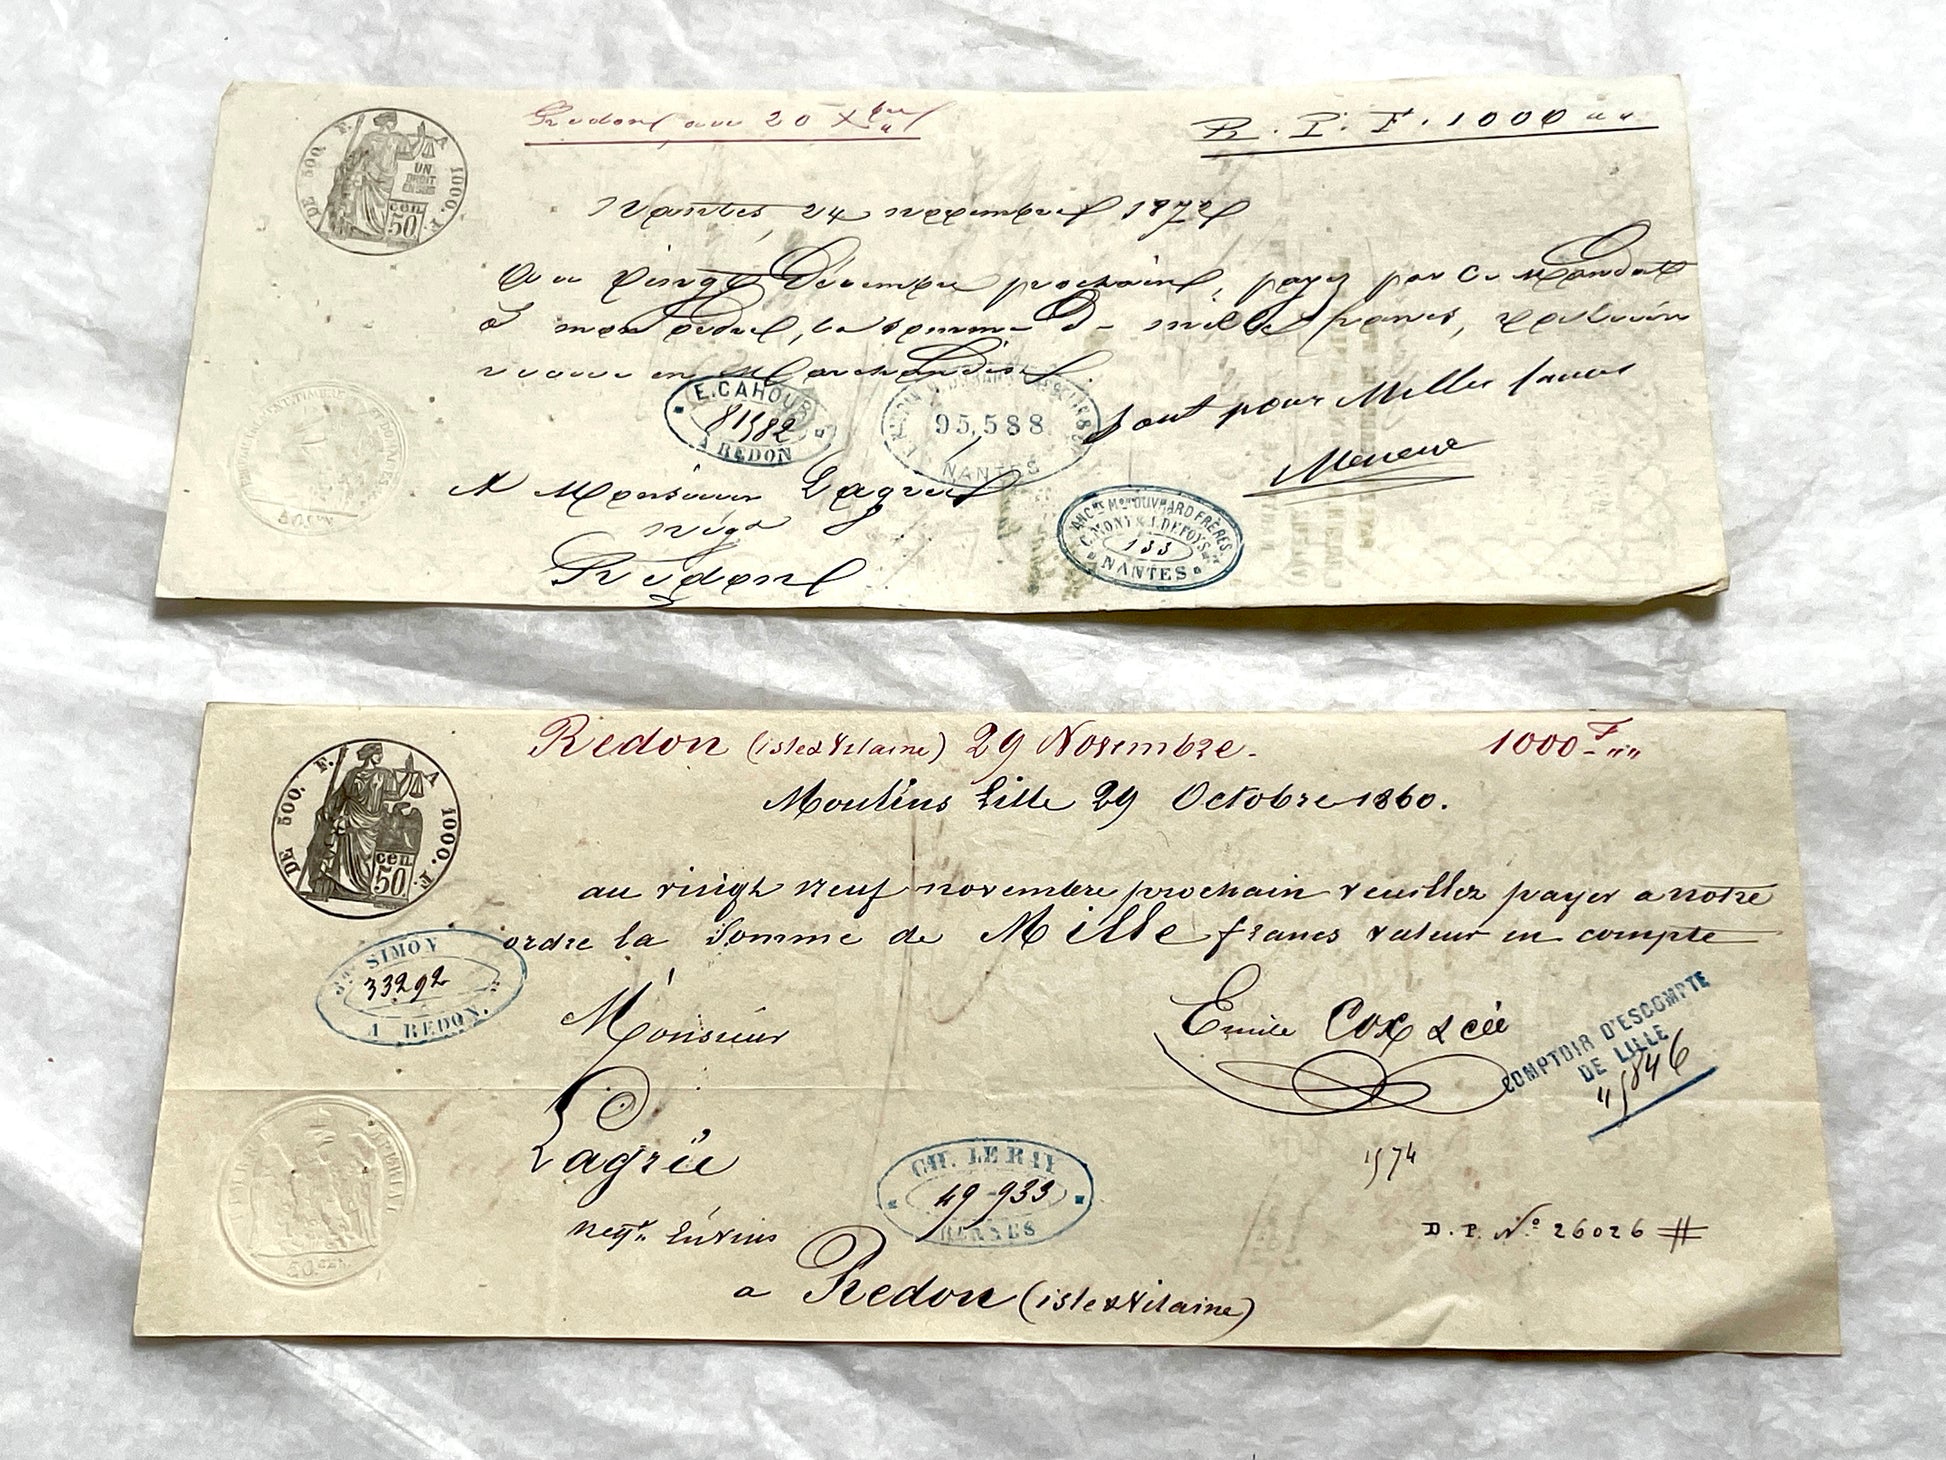 DE 500 F. A 1000. F.
UN DROIT EN SUS
cen. 50
Redon au 20 Xbre
B. P. F. 1000 „ „
Nantes, 24 novembre 1872
Au Vingt Décembre prochain, payez par ce Mandat
à mon ordre, la somme de mille francs, valeur
reçue en Marchandises.
E. CAHOUR
81582
A REDON
95,588
NANTES
Bont pour Mille francs
A Monsieur Lagrée
négt
Redon
ANCNE MON OUVRARD FRÈRES
C. MONY & J. DEFOYS
133
NANTES
DE 500. F. A 1000. F.
cen. 50
Redon (isle & Vilaine) 29 Novembre.
1000 F „ „
Moulins Lille 29 Octobre 1860.
au vingt neuf novembre prochain veuillez payer a notre
ordre la Somme de Mille francs valeur en compte
SIMON
33292
A REDON.
Monsieur
Emile Cox & cie
COMPTOIR D'ESCOMPTE
DE LILLE
15846
Lagrée
negt
1574
CH. LE RAY
49-933
RENNES
D. P. No 26026 #
a Redon (isle & Vilaine)
50 cen.